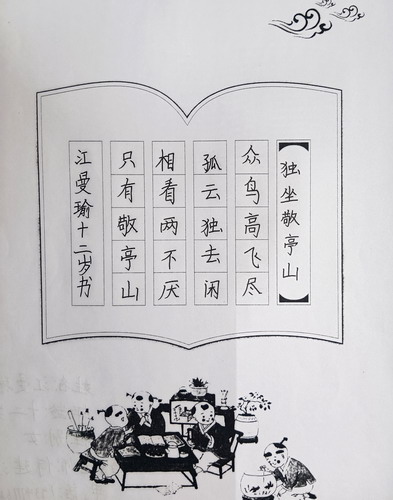 独坐敬亭山
众鸟高飞尽
孤云独去闲
相看两不厌
只有敬亭山
江曼瑜十二岁书